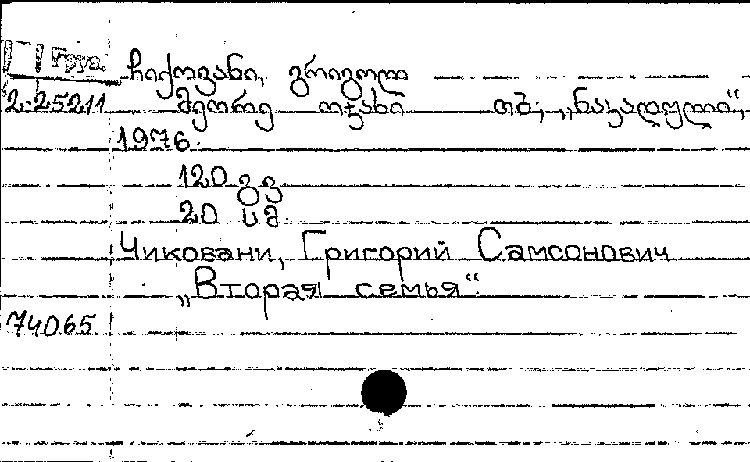 Груз. ჩიქოვანი, გრიგოლ
2-25211 მეორე ოჯახი თბ., „ნაკადული“,
1976.
120 გვ
20 სმ.
Чиковани, Григорий Самсонович
„Вторая семья“.
74065